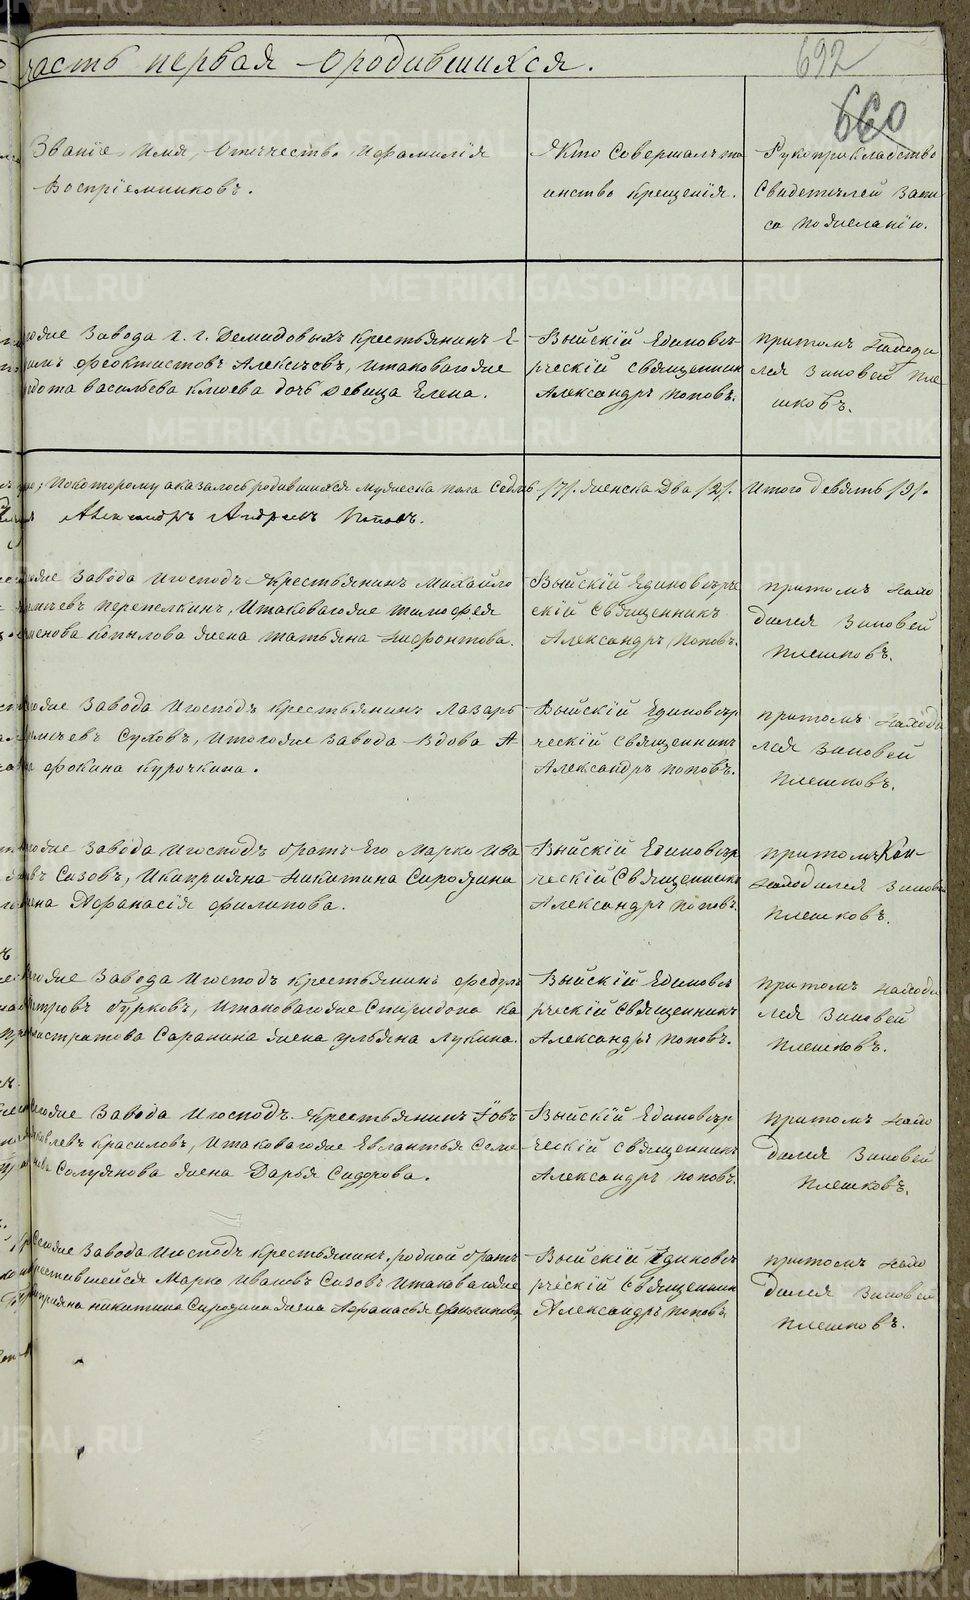 часть первая о родившихся.
692
660
Званіе, Имя, Отчество, и фамилія
Воспріемниковъ.
Кто совершалъ та
инство крещенія.
Рукоприкладство
свидетелей запи
си по желанію.
завода г. г. Демидовыхъ крестьянинъ Е-
Феоктистовъ Алексѣевъ, и таковагоже
Васильева Клюева дочь девица Елена.
Выйскій Единовѣ
рческій священник
Александръ Поповъ.
притомъ находи
лся Зиновей Пле
шковъ.
по которому оказалось родившихся мужеска пола седмь /7/. женска два /2/. Итого девять /9/.
Александръ Андреевъ Поповъ.
завода и господъ крестьянинъ Михайло
Перепелкинъ, и таковагоже Тимофея
Копылова жена Татьяна Нифонтова.
Выйскій Единовѣрче
скій Священникъ
Александръ Поповъ.
притомъ нахо
дился Зиновей
Плешковъ.
завода и господъ крестьянинъ Лазарь
Суховъ, и тогоже завода вдова А
Фокина Курочкина.
Выйскій Единовѣр
ческій Священникъ
Александръ Поповъ.
притомъ находи
лся Зиновей
Плешковъ.
завода и господъ братъ его Марко Ива
Сизовъ, и Киприяна Никитина
Афанасія Филипова.
Выйскій Единовѣр
ческій Священникъ
Александръ Поповъ.
притомъ
находился Зиновей
Плешковъ.
завода и господъ крестьянинъ Федоръ
Петровъ Бурковъ, и таковагоже Спиридона Ка
листратова Сарапина жена Ульяна Лукина.
Выйскій Единовѣ
рческій Священникъ
Александръ Поповъ.
притомъ находи
лся Зиновей
Плешковъ.
завода и господъ крестьянинъ Іовъ
Красиловъ, и таковагоже Евлантья Семе
Солуянова жена Дарья Сидорова.
Выйскій Единовѣр
ческій священникъ
Александръ Поповъ.
притомъ нахо
дился Зиновей
Плешковъ.
завода и господъ крестьянинъ, родной братъ
крестившейся Марко Ивановъ Сизовъ и таковагоже
Киприяна Никитина жена Афанасья Филипова,
Выйскій Единовѣ
рческій Священник
Александръ Поповъ
притомъ нахо
дился Зиновей
Плешковъ.
METRIKI.GASO-URAL.RU